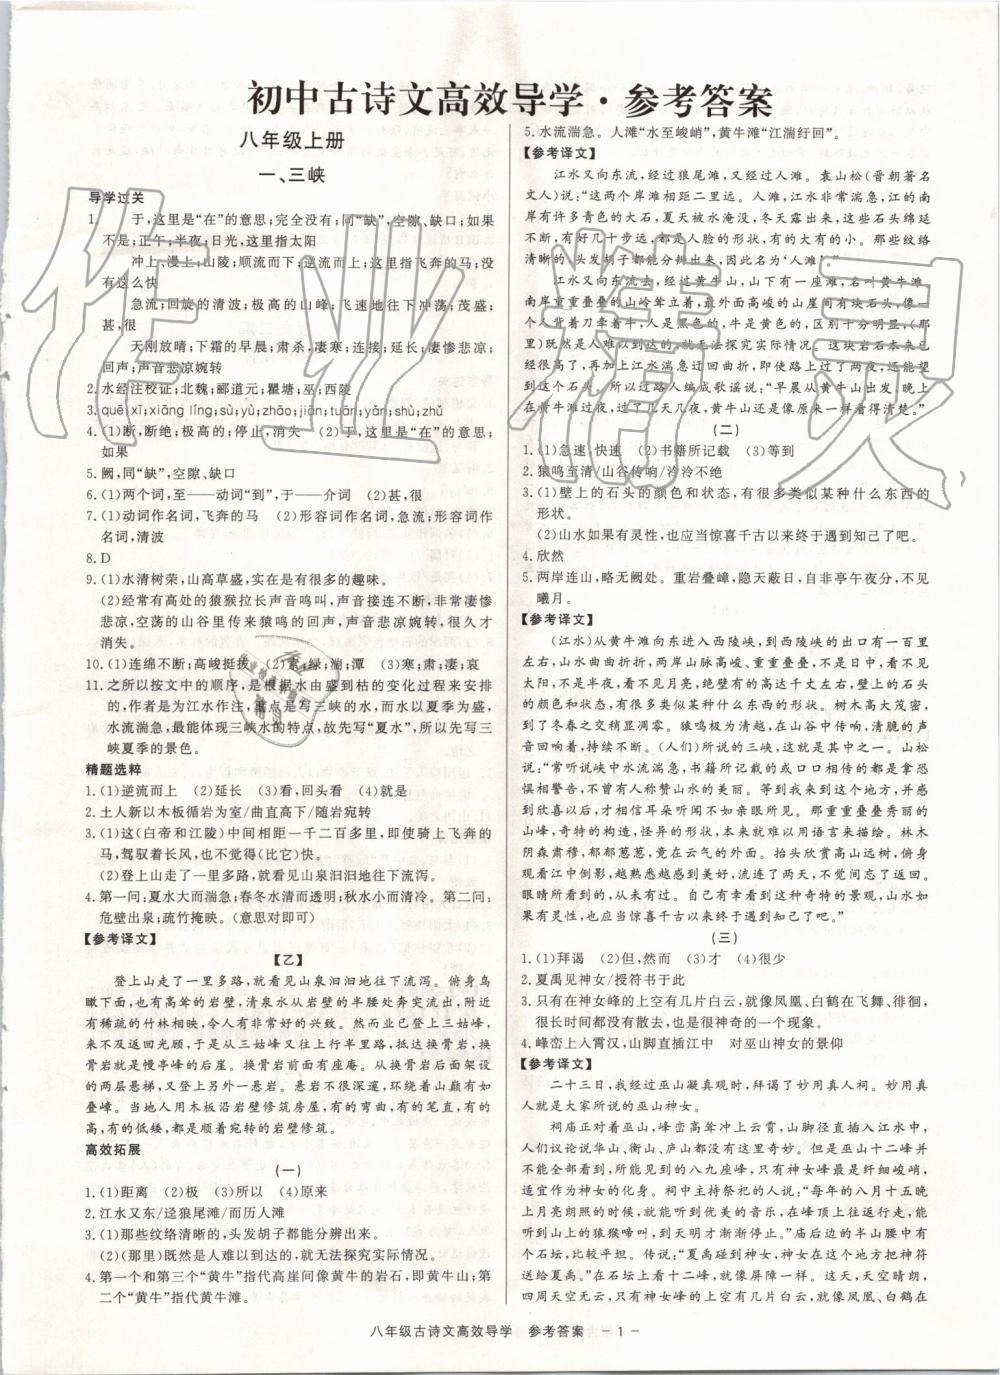 初中古诗文高效导学·参考答案
八年级上册
一、三峡
导学过关
1. 于,这里是“在”的意思;完全没有;同“缺”,空隙、缺口;如果不是;正午;半夜;日光,这里指太阳
冲上、漫上;山陵;顺流而下;逆流而上;这里指飞奔的马;没有这么快
急流;回旋的清波;极高的山峰;飞速地往下冲荡;茂盛;甚,很
天刚放晴;下霜的早晨;肃杀,凄寒;连接;延长;凄惨悲凉;回声;声音悲凉婉转
2. 水经注校证;北魏;郦道元;瞿塘;巫;西陵
3. quē xī;xiāng líng;sù;yù;zhāo;jiān;tuān;yǎn;shù;zhǔ
4. (1)断,断绝;极高的;停止,消失 (2)于,这里是“在”的意思;如果
5. 阙,同“缺”,空隙、缺口
6. (1)两个词,至——动词“到”,于——介词 (2)甚,很
7. (1)动词作名词,飞奔的马 (2)形容词作名词,急流;形容词作名词,清波
8. D
9. (1)水清树荣,山高草盛,实在是有很多的趣味。
(2)经常有高处的猿猴拉长声音鸣叫,声音接连不断,非常凄惨悲凉,空荡的山谷里传来猿鸣的回声,声音悲凉婉转,很久才消失。
10. (1)连绵不断;高峻挺拔 (2)素;绿;湍;潭 (3)寒;肃;凄;哀
11. 之所以按文中的顺序,是根据水由盛到枯的变化过程来安排的,作者是为江水作注,重点是写三峡的水,而水以夏季为盛,水流湍急,最能体现三峡水的特点,故先写“夏水”,所以先写三峡夏季的景色。
精题选粹
1. (1)逆流而上 (2)延长 (3)看,回头看 (4)就是
2. 土人新以木板循岩为室/曲直高下/随岩宛转
3. (1)这(白帝和江陵)中间相距一千二百多里,即使骑上飞奔的马,驾驭着长风,也不觉得(比它)快。
(2)登上山走了一里多路,就看见山泉汩汩地往下流泻。
4. 第一问:夏水大而湍急;春冬水清而透明;秋水小而清冷。第二问:危壁出泉;疏竹掩映。(意思对即可)
【参考译文】
【乙】
登上山走了一里多路,就看见山泉汩汩地往下流泻。俯身鸟瞰下面,有高耸的岩壁,清泉水从岩壁的半腰处奔突流出,附近有稀疏的竹林相映,令人有非常好的兴致。然而业已登上三姑峰,来不及返回光顾,于是从三姑峰又往上行半里路,抵达换骨岩,换骨岩就是幔亭峰的后岩。换骨岩前面有座庵。从换骨岩后面架设的两层悬梯,登上另一处悬岩。悬岩不很深邃,环绕着山巅有如叠嶂。当地人用木板沿岩壁修筑房屋,有的弯曲,有的笔直,有的高,有的低矮,都是顺着宛转的岩壁修筑。
高效拓展
(一)
1. (1)距离 (2)极 (3)所以 (4)原来
2. 江水又东/迳狼尾滩/而历人滩
3. (1)那些纹络清晰的,头发胡子都能分辨出来。
(2)(那里)既然是人难以到达的,就无法探究实际情况。
4. 第一个和第三个“黄牛”指代高崖间像黄牛的岩石,即黄牛山;第二个“黄牛”指代黄牛滩。
5. 水流湍急。人滩“水至峻峭”,黄牛滩“江湍纡回”。
【参考译文】
江水又向东流,经过狼尾滩,又经过人滩。袁山松(晋朝著名文人)说:“这两个岸滩相距二里远。人滩,江水非常湍急,江的南岸有许多青色的大石,夏天被水淹没,冬天露出来,这些石头绵延不断,有好几十步远,都是人脸的形状,有的大有的小。那些纹络清晰的,头发胡子都能分辨出来;因此名为‘人滩’。”
江水又向东流去,经过黄牛山,山下有一座滩,名叫黄牛滩。南岸重重叠叠的山岭耸立着,最外面高峻的山崖间有块石头,像一个人背着刀牵着牛,人是黑色的,牛是黄色的,区别十分明显,(那里)既然是人难以到达的,就无法探究实际情况。这块岩石已经很高了,再加上江水湍急迂回曲折,即使路上过了两夜,还能望到这个石头,所以过路人编成歌谣说:“早晨从黄牛山出发,晚上在黄牛滩过夜,过了几天几夜,黄牛山还是像原来一样看得清楚。”
(二)
1. (1)急速,快速 (2)书籍所记载 (3)等到
2. 猿鸣至清/山谷传响/泠泠不绝
3. (1)壁上的石头的颜色和状态,有很多类似某种什么东西的形状。
(2)山水如果有灵性,也应当惊喜千古以来终于遇到知己了吧。
4. 欣然
5. 两岸连山,略无阙处。重岩叠嶂,隐天蔽日,自非亭午夜分,不见曦月。
【参考译文】
(江水)从黄牛滩向东进入西陵峡,到西陵峡的出口有一百里左右,山水曲曲折折,两岸山脉高峻、重重叠叠,不是中午,看不见太阳,不是半夜,看不见月亮。绝壁有的高达千丈左右,壁上的石头的颜色和状态,有很多类似某种什么东西的形状。树木高大茂密,到了冬春之交稍显凋零。猿鸣极为清越,在山谷中传响,清脆的声音回响着,持续不断。(人们)所说的三峡,这就是其中之一。山松说:“常听说峡中水流湍急,书籍所记载的或口口相传的都是拿恐惧相警告,不曾有人称赞山水的美丽。等到我来到这个地方,并感到欣喜以后,才相信耳朵听闻不如亲眼所见。那重重叠叠秀丽的山峰,奇特的构造,怪异的形状,本来就难以用语言来描绘。林木阴森肃穆,郁郁葱葱,竟在云气的外面。抬头欣赏高山远处,俯身观看江中倒影,越熟悉越感到美好。流连了两天,不觉间忘了返回。眼睛所看到的,从未有过。自己有幸见到这种奇特的景观,山水如果有灵性,也应当惊喜千古以来终于遇到知己了吧。”
(三)
1. (1)拜谒 (2)但,然而 (3)才 (4)很少
2. 夏禹见神女/授符书于此
3. 只有在神女峰的上空有几片白云,就像凤凰、白鹤在飞舞、徘徊,很长时间都没有散去,也是很神奇的一个现象。
4. 峰峦上入霄汉,山脚直插江中 对巫山神女的景仰
【参考译文】
二十三日,经过巫山凝真观时,拜谒了妙用真人祠。妙用真人就是大家所说的巫山神女。
祠庙正对着巫山,峰峦高耸冲上云霄,山脚径直插入江水中,人们议论说华山、衡山、庐山都没有这里奇妙。但是巫山十二峰并不能全部看到,所能见到的八九座峰,只有神女峰最是纤细峻峭,适宜作为神女的化身。祠中主持祭祀的人说:“每年的八月十五晚上月亮朗照的时候,就能听到优美的音乐,在峰顶上往往返返行走,能听到山上的猿猴啼叫,到天明才渐渐停止。”庙后边的半山腰中有个石坛,比较平坦。传说:“夏禹碰到神女,神女在这个地方把神符送给夏禹。”在石坛上看十二峰,就像屏障一样。这天,天空晴朗,四周天空无云,只有在神女峰的上空有几片白云,就像凤凰、白鹤在
八年级古诗文高效导学 参考答案 - 1 -
作业精灵